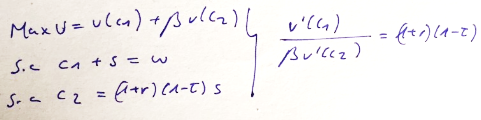 Max U = u(c1) + β u(c2)
s.c c1 + s = w
s.c c2 = (1+r)(1-τ) s
u'(c1) / β u'(c2) = (1+r)(1-τ)